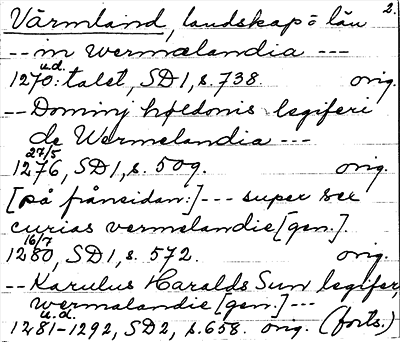 Värmland, landskap o län 2.
-- in wermalandia ---
u.d.
1270: talet, SD1, s. 738. orig.
-- Dominj høldonis legiferi
de Wermelandia ---
27/5
1276, SD1, s. 509. orig.
[på frånsidan:] --- super ser
curias vermelandie [gen.].
16/7
1280, SD1, s. 572. orig.
-- Karulus Haralds Sun legifer,
wermalandie [gen.] ---
u.d.
1281-1292, SD2, s. 658. orig. (forts.)